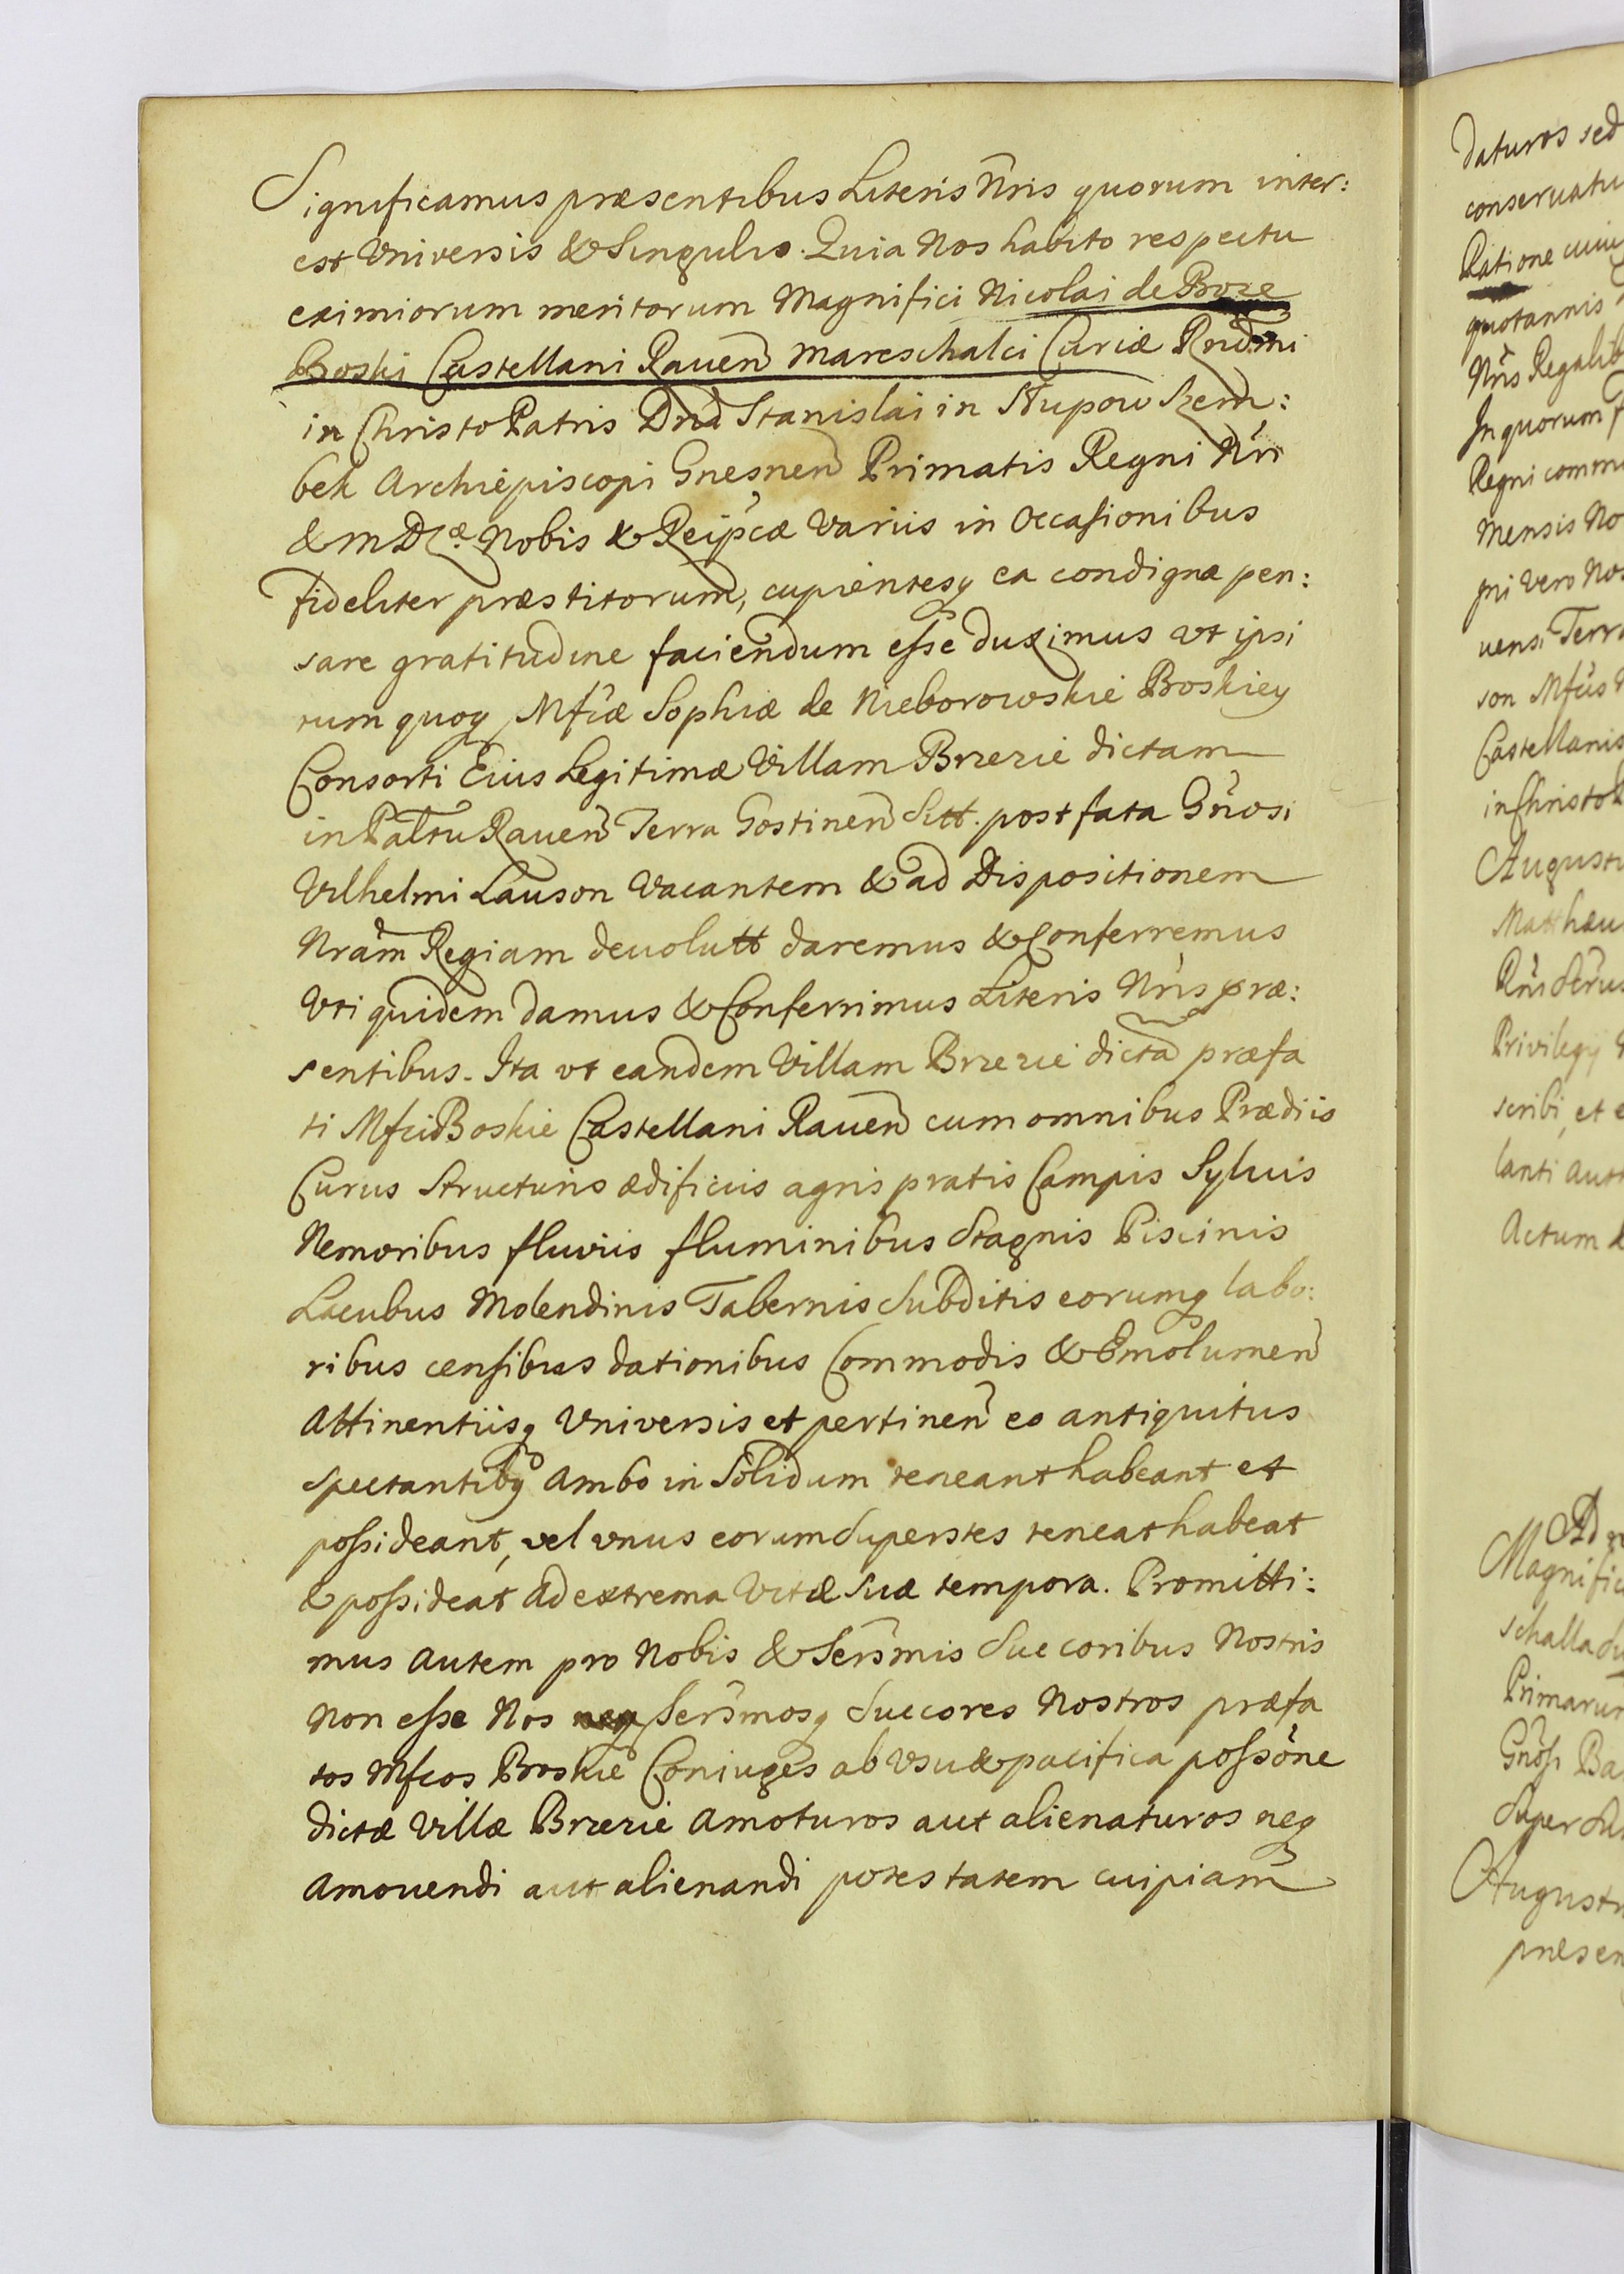 Significamus præsentibus Literis Nris quorum inter:
est Vniversis & Singulis. Quia Nos habito respectu
eximiorum meritorum Magnifici Nicolai de Boze
Boski Castellani Rauen Mareschalci Curiæ Rndmi
in Christo Patris Dnd Stanislai in Słupow Szem:
bek Archiepiscopi Gnesnen Primatis Regni Nri
& M D Læ. Nobis & Reipcæ Variis in Occasionibus
fideliter præstitorum, cupientesq ea condigna pen:
sare gratitudine faciendum esse duximus vt ipsi
tum quoq Mfcæ Sophiæ de Nieborowskie Boskiey
Consorti Eius Legitimæ Villam Brzezie dictam
in Paltu Rauen Terra Gostinen Sitt. post fata Gnosi
Vilhelmi Lauson Vacantem & ad Dispositionem
Nram Regiam deuolutt daremus & Conferremus
Vti quidem damus & Conferrimus Literis Nris præ:
sentibus. Ita vt eandem Villam Brzezie dicta præfa
ti Mfci Boskie Castellani Rauen cum omnibus Prædiis
Curus Structuris ædificiis agris pratis Campis Syluis
Nemoribus fluviis fluminibus Stagnis Piscinis
Lacubus Molendinis Tabernis Subditis eorumq labo:
ribus censibus dationibus Commodis & Emolumen
Attinentiisq Vniversis et pertinen eo antiquitus
spectantibq Ambo in Solidum teneant habeant et
possideant, vel vnus eorum Superstes teneat habeat
& possideat ad extrema Vitæ Suæ tempora. Promitti:
mus Autem pro Nobis & Sersmis Succoribus Nostris
Non esse Nos Sersmosq Succores Nostros præfa
tos Mfcos Boskie Coniuges ab Vsu & pacifica possone
dictæ Villæ Brzezie Amoturos aut alienaturos neq
Amouendi aut alienandi potestatem cuipiam
daturos sed
conseruatu
Ratione cuiu
quotannis
Nris Regalib
In quorum f
Regni commu
Mensis No
gni Vero Nos
uensi Terra
son Mfcus N
Castellanis
in Christo P
Augustu
Matthæu
Privilegy
scribi, et e
lanti Auth
Actum &
Ad
Magnific
schalla du
Primarum
Gnosi Ba
Super Su
Augustu
præsen